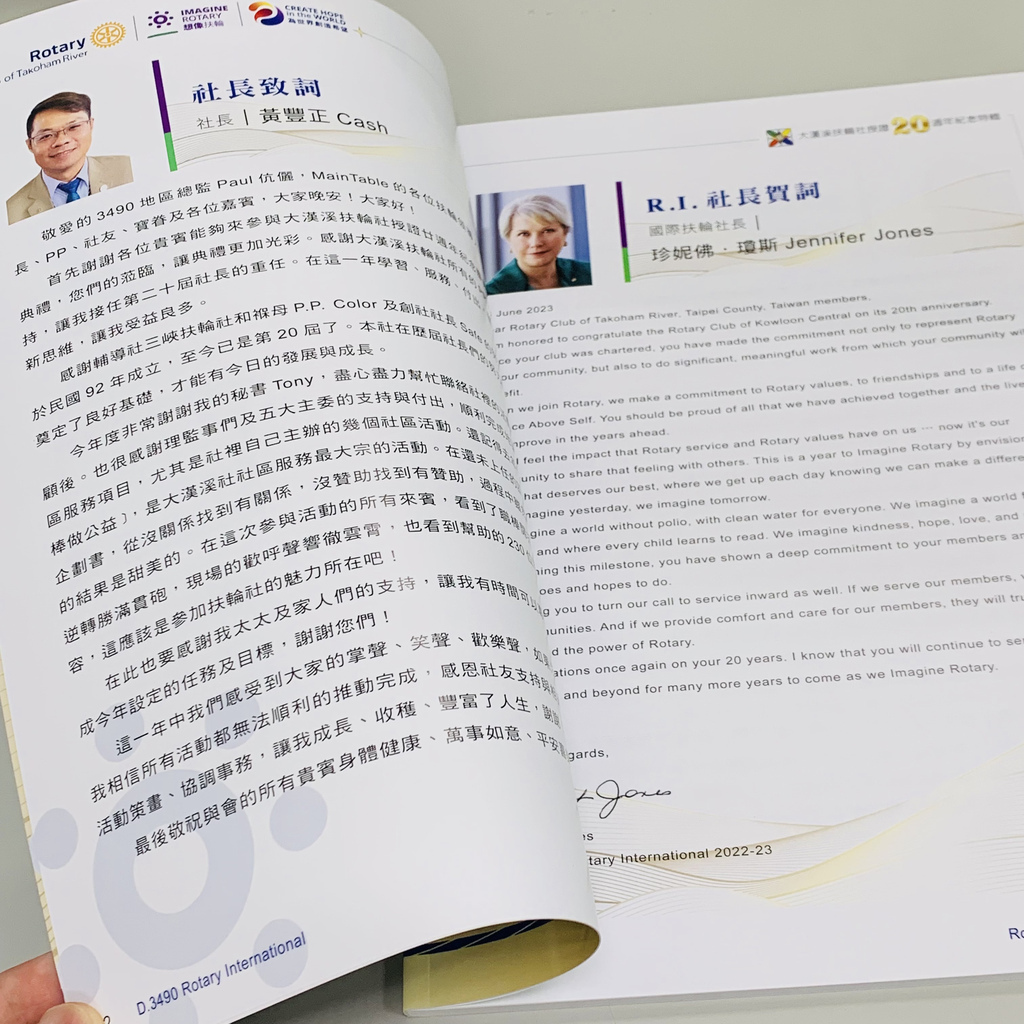 Rotary
of Takoham River
IMAGINE
ROTARY
想像扶輪
CREATE HOPE
in the WORLD
為世界創造希望
社長致詞
社長 | 黃豐正 Cash
敬愛的 3490 地區總監 Paul 伉儷，MainTable 的各位扶輪
長、PP、社友、寶眷及各位嘉賓，大家晚安！大家好！
首先謝謝各位貴賓能夠來參與大漢溪扶輪社授證廿週年
典禮，您們的蒞臨，讓典禮更加光彩。感謝大漢溪扶輪社所有的
持，讓我接任第二十屆社長的重任。在這一年學習、服務、付
新思維，讓我受益良多。
感謝輔導社三峽扶輪社和褓母 P.P. Color 及創社社長
於民國 92 年成立，至今已是第 20 屆了。本社在歷屆社長們的
奠定了良好基礎，才能有今日的發展與成長。
今年度非常謝謝我的秘書 Tony，盡心盡力幫忙聯絡社裡的
顧後。也很感謝理監事們及五大主委的支持與付出，順利完
區服務項目，尤其是社裡自己主辦的幾個社區活動。還記得
棒做公益〕，是大漢溪社社區服務最大宗的活動。在還未上任
企劃書，從沒關係找到有關係，沒贊助找到有贊助，過程
的結果是甜美的。在這次參與活動的所有來賓，看到了
逆轉勝滿貫砲，現場的歡呼聲響徹雲霄，也看到幫助的 230
容，這應該是參加扶輪社的魅力所在吧！
在此也要感謝我太太及家人們的支持，讓我有時間可
成今年設定的任務及目標，謝謝您們！
這一年中我們感受到大家的掌聲、笑聲、歡樂聲，如
我相信所有活動都無法順利的推動完成，感恩社友支持與
活動策畫、協調事務，讓我成長、收穫、豐富了人生，謝
最後敬祝與會的所有貴賓身體健康、萬事如意、平安
D.3490 Rotary International
2
大漢溪扶輪社授證 20 週年紀念特輯
R.I. 社長賀詞
國際扶輪社長 |
珍妮佛．瓊斯 Jennifer Jones
June 2023
ar Rotary Club of Takoham River, Taipei County, Taiwan members,
honored to congratulate the Rotary Club of Kowloon Central on its 20th anniversary.
ce your club was chartered, you have made the commitment not only to represent Rotary
our community, but also to do significant, meaningful work from which your community
efit.
n we join Rotary, we make a commitment to Rotary values, to friendships and to a life
ce Above Self. You should be proud of all that we have achieved together and the live
mprove in the years ahead.
I feel the impact that Rotary service and Rotary values have on us … now it's our
unity to share that feeling with others. This is a year to Imagine Rotary by envision
hat deserves our best, where we get up each day knowing we can make a differe
agine yesterday, we imagine tomorrow.
gine a world without polio, with clean water for everyone. We imagine a world
and where every child learns to read. We imagine kindness, hope, love, and
ning this milestone, you have shown a deep commitment to your members an
opes and hopes to do.
g you to turn our call to service inward as well. If we serve our members,
unities. And if we provide comfort and care for our members, they will tru
d the power of Rotary.
ations once again on your 20 years. I know that you will continue to se
and beyond for many more years to come as we Imagine Rotary.
gards,
Jones
es
tary International 2022-23
Ro